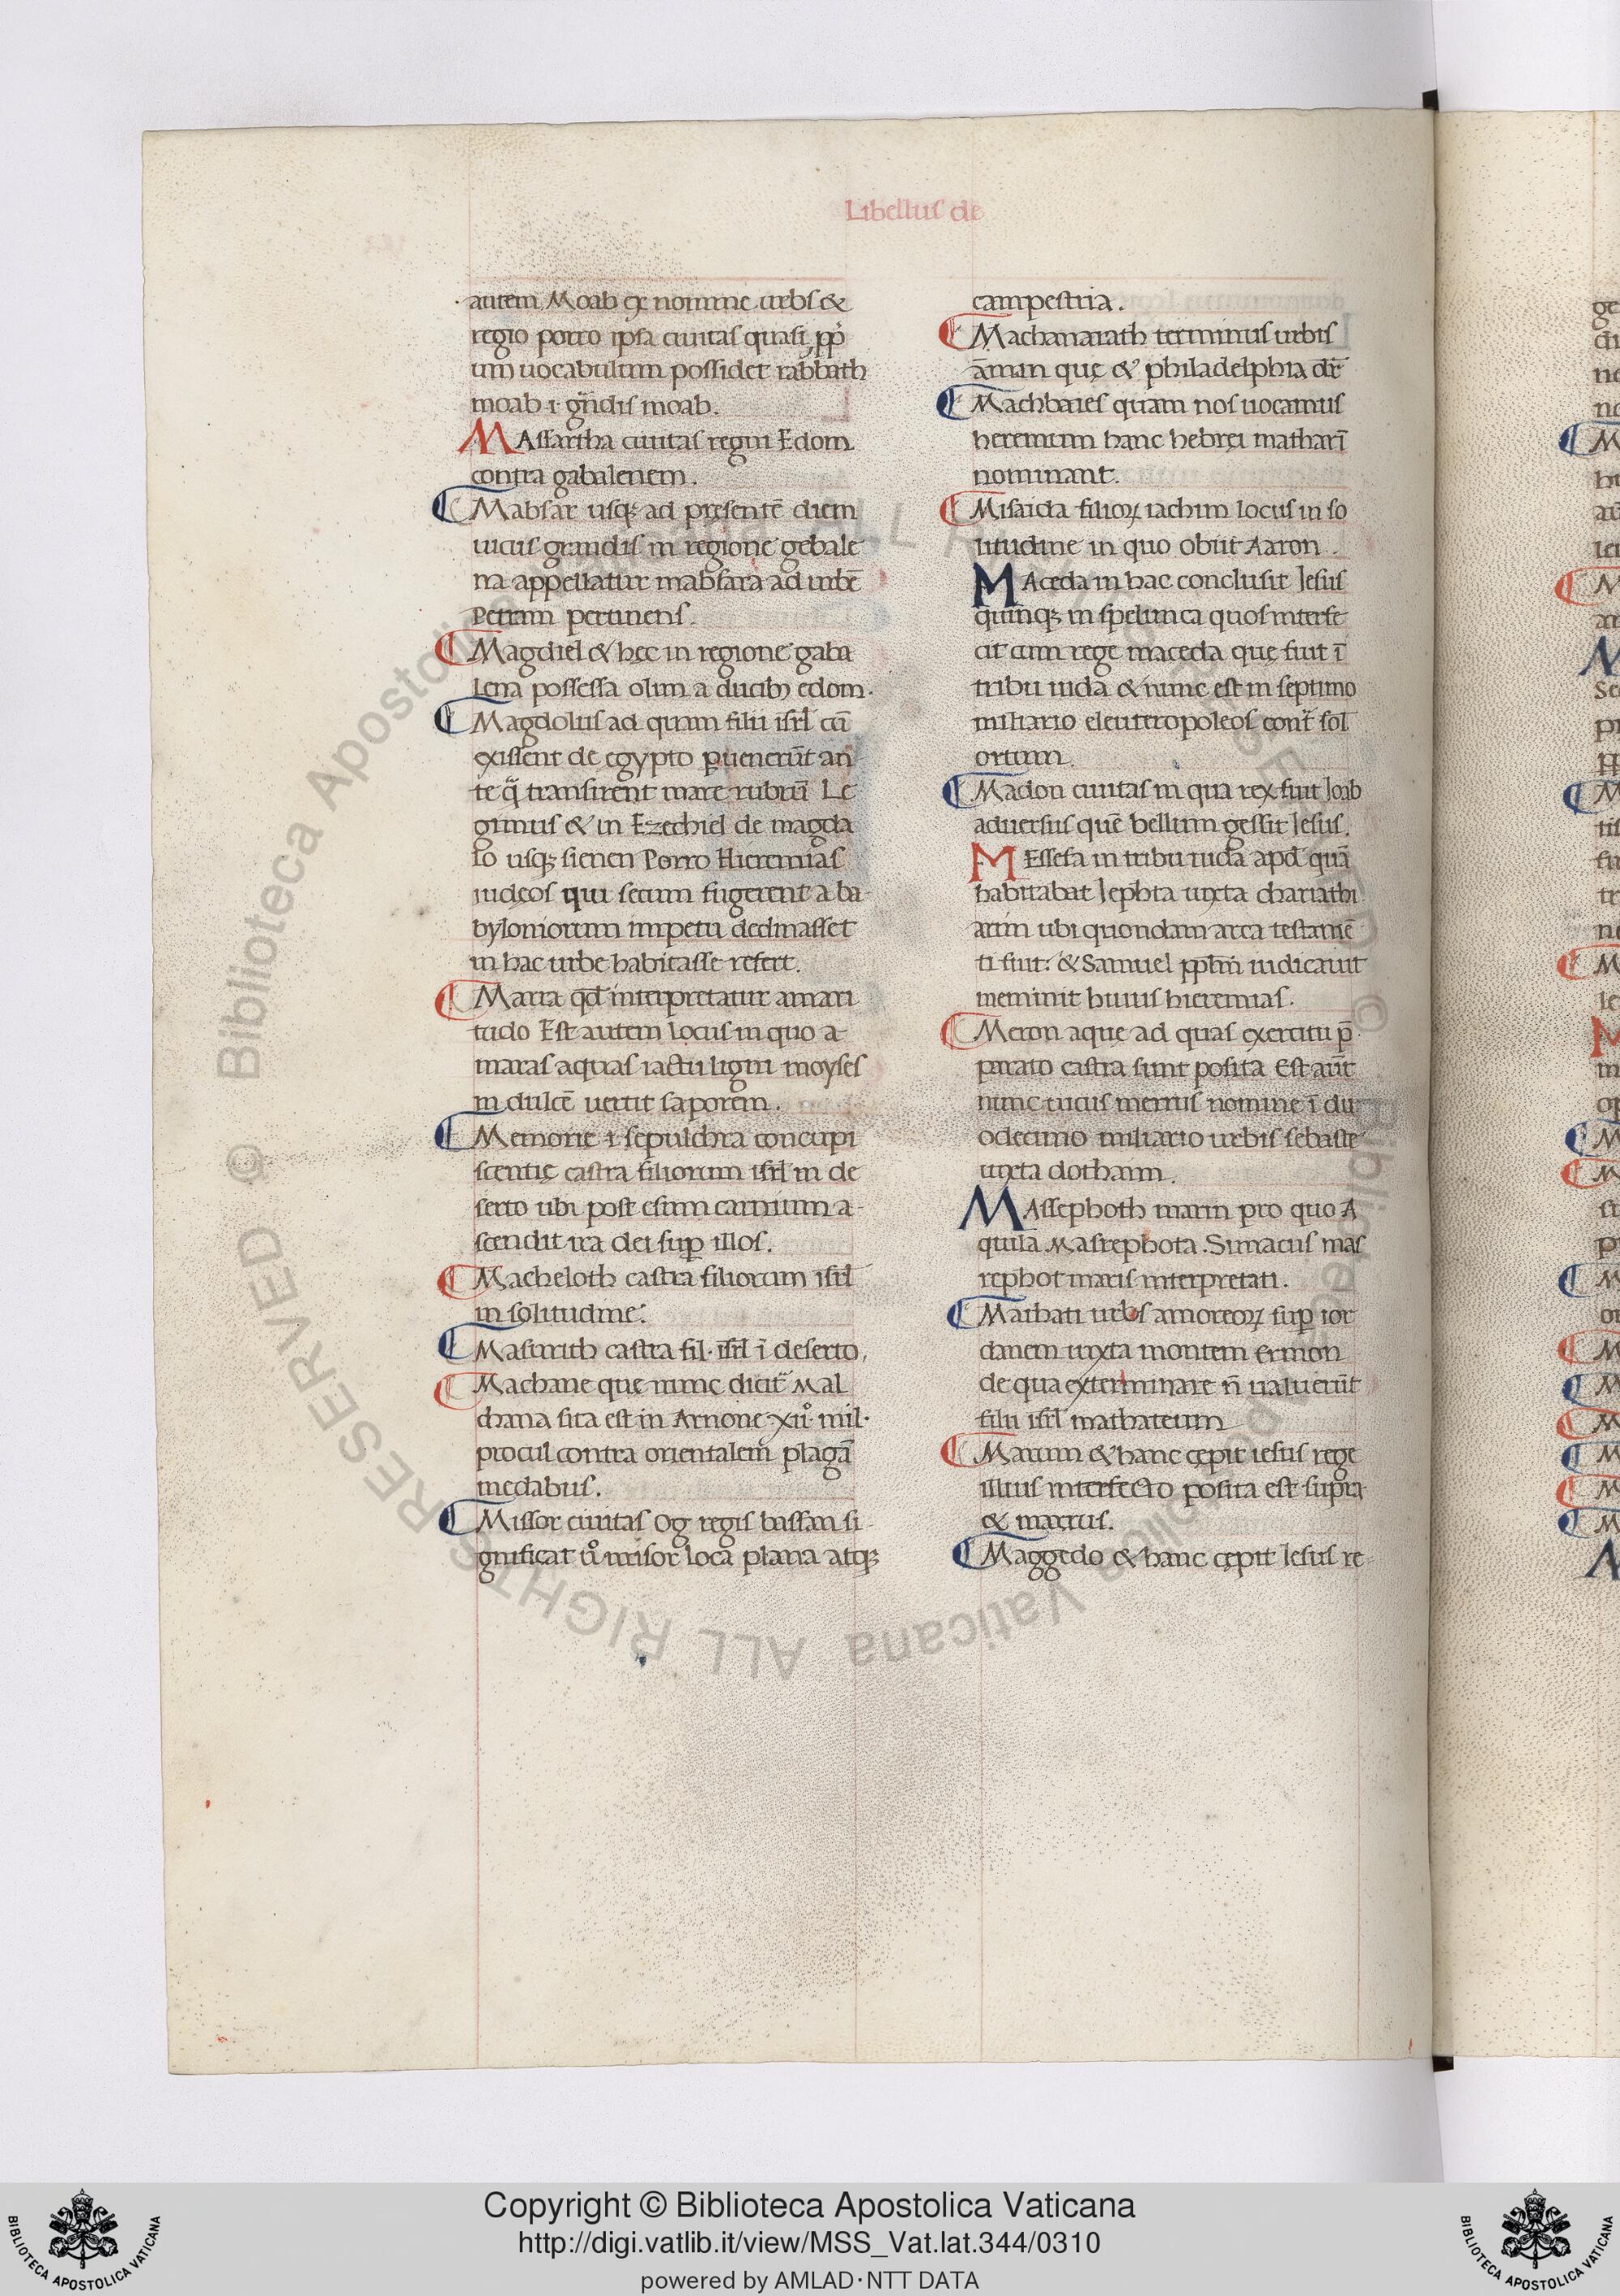 Libellus de
autem Moab ex nomine urbs &
regio porro ipsa ciuitas quasi ꝓp̃
um uocabulum possidet rabbath
moab .i. gͣndis moab.
MAssartha ciuitas regni Edom
contra gabalenem.
Mabsar usqꝫ ad presentē diem
uicus grandis in regione gebale
na appellatur mabsara ad urbē
Petram pertinens.
Magdiel & hęc in regione gaba
lena possessa olim a ducibꝫ edom.
Magdolus ad quam filii isrł cū
exissent de egypto ꝑuenerūt an
te qͣ transirent mare rubrū Le
gimus & in Ezechiel de magda
lo usqꝫ sienen Porro Hieremias
iudęos qui secum fugerent a ba
byloniorum impetu declinasset
in hac urbe habitasse refert.
Marra qd̄ interpretatur amari
tudo Est autem locus in quo a
maras aquas iactu ligni moyses
in dulcē uertit saporem.
Memorię .i. sepulchra concupi
scentię castra filiorum isrł in de
serto ubi post esum carnium a-
scendit ira dei suꝑ illos.
Macheloth castra filiorum isrł
in solitudine.
Masurith castra fil. isrł ī deserto,
Machane quę nunc dicit̃ Mal
chana sita est in Arnone xııͦ. mil.
procul contra orientalem plagā
medabus.
Missor ciuitas Og regis bassan si
gnificat ůͦ misor loca plana atqꝫ
campestria.
Machanarath terminus urbis
āman quę & philadelphia dr̄
Machbaies quam nos uocamus
heremum hanc hebręi matharī
nominant.
Misaida filioꝝ iachim locus in so
litudine in quo obiit Aaron
MAceda in hac conclusit Jesus
quinqꝫ in spelunca quos interfe
cit cum rege maceda quę fuit ī
tribu iuda & nunc est in septimo
miliario eleuteropoleos cont̃ sol
ortum.
Madon ciuitas in qua rex fuit Joab
aduersus quē bellum gessit Jesus.
MEssefa in tribu iuda apd̄ quā
habitabat Jephta iuxta chariathi
arim ubi quondam arca testamē
ti fuit: & Samuel ppłm iudicauit
meminit huius hieremias.
Meron aquę ad quas exercitu p̄
parato castra sunt posita Est aūt
nunc uicus merrus nomine ī du
odecimo miliario urbis sebaste
iuxta dothaim.
MAssephoth marin pro quo A
quila Masrephota. Simacus mas
rephot maris interpretati.
Maihati urbs amoreoꝝ suꝑ ior
danem iuxta montem Ermon
de qua exterminare n̄ ualuerūt
filii isrł mathateum
Marum & hanc cępit iesus rege
illius interfecto posita est supra
& marrus.
Maggedo & hanc cępit Jesus re-
© Biblioteca Apostolica Vaticana ALL RIGHTS RESERVED
© Biblioteca Apostolica Vaticana ALL RIGHTS RESERVED
Copyright © Biblioteca Apostolica Vaticana
http://digi.vatlib.it/view/MSS_Vat.lat.344/0310
powered by AMLAD·NTT DATA
BIBLIOTECA APOSTOLICA VATICANA
BIBLIOTECA APOSTOLICA VATICANA